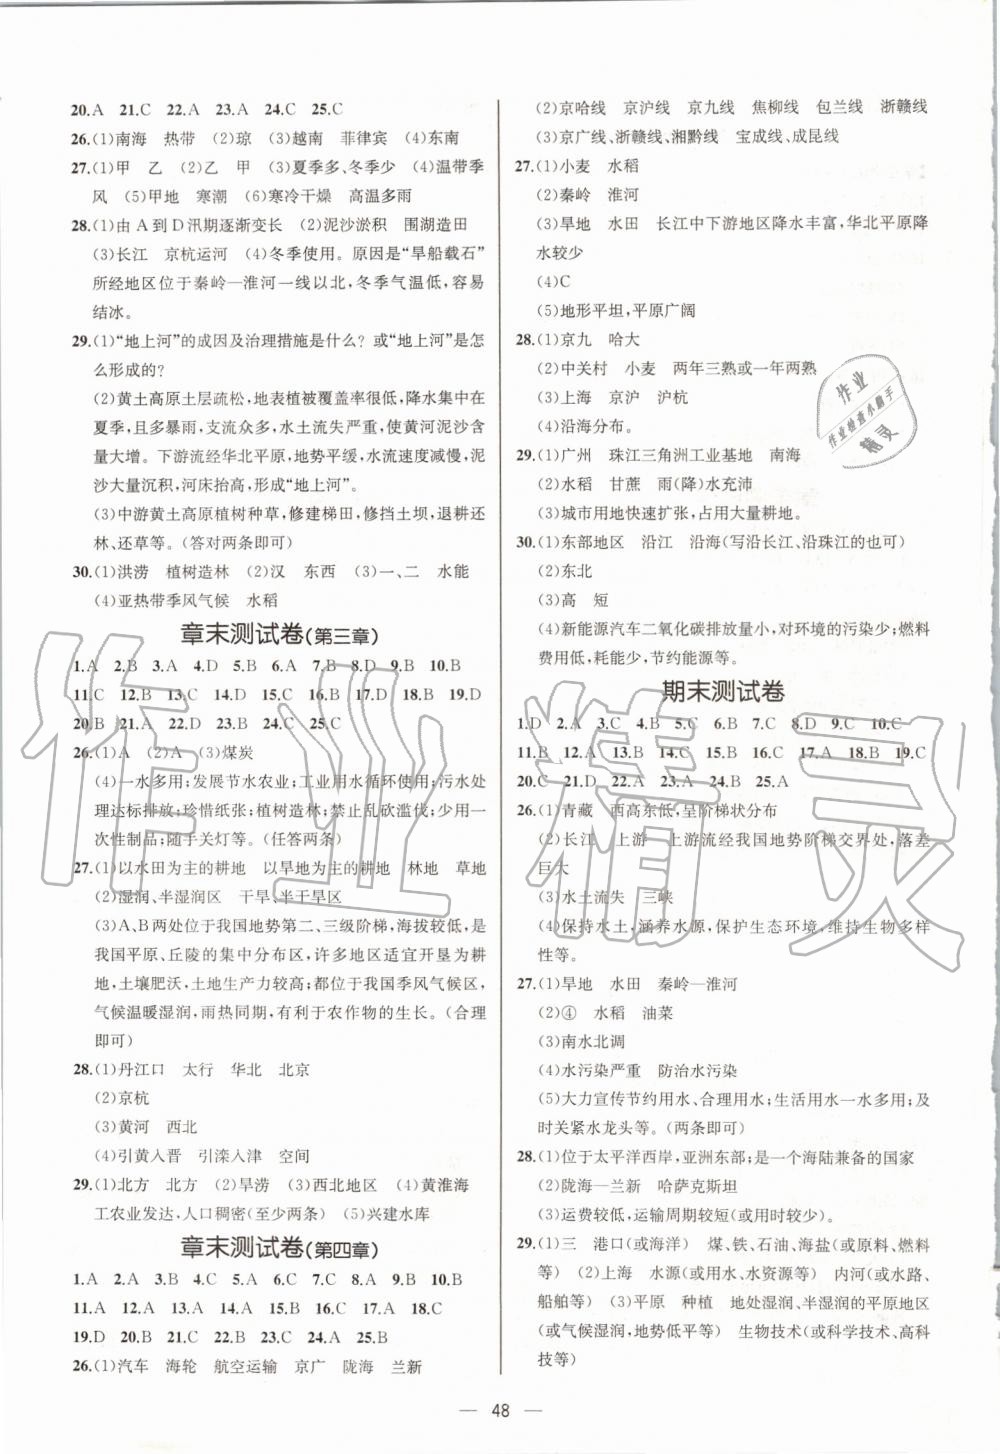 20.A 21.C 22.A 23.A 24.C 25.C
26.(1)南海 热带 (2)琼 (3)越南 菲律宾 (4)东南
27.(1)甲 乙 (2)乙 甲 (3)夏季多、冬季少 (4)温带季
风 (5)甲地 寒潮 (6)寒冷干燥 高温多雨
28.(1)由 A 到 D 汛期逐渐变长 (2)泥沙淤积 围湖造田
(3)长江 京杭运河 (4)冬季使用。原因是“旱船载石”
所经地区位于秦岭—淮河一线以北,冬季气温低,容易
结冰。
29.(1)“地上河”的成因及治理措施是什么? 或“地上河”是怎
么形成的?
(2)黄土高原土层疏松,地表植被覆盖率很低,降水集中在
夏季,且多暴雨,支流众多,水土流失严重,使黄河泥沙含
量大增。下游流经华北平原,地势平缓,水流速度减慢,泥
沙大量沉积,河床抬高,形成“地上河”。
(3)中游黄土高原植树种草,修建梯田,修挡土坝,退耕还
林、还草等。(答对两条即可)
30.(1)洪涝 植树造林 (2)汉 东西 (3)一、二 水能
(4)亚热带季风气候 水稻
章末测试卷(第三章)
1.A 2.B 3.A 4.D 5.B 6.A 7.B 8.D 9.B 10.B
11.C 12.B 13.B 14.C 15.C 16.B 17.D 18.B 19.D
20.B 21.A 22.D 23.B 24.C 25.C
26.(1)A (2)A (3)煤炭
(4)一水多用;发展节水农业;工业用水循环使用;污水处
理达标排放;珍惜纸张;植树造林;禁止乱砍滥伐;少用一
次性制品;随手关灯等。(任答两条)
27.(1)以水田为主的耕地 以旱地为主的耕地 林地 草地
(2)湿润、半湿润区 干旱、半干旱区
(3)A、B两处位于我国地势第二、三级阶梯,海拔较低,是
我国平原、丘陵的集中分布区,许多地区适宜开垦为耕
地,土壤肥沃,土地生产力较高;都位于我国季风气候区,
气候温暖湿润,雨热同期,有利于农作物的生长。(合理
即可)
28.(1)丹江口 太行 华北 北京
(2)京杭
(3)黄河 西北
(4)引黄入晋 引滦入津 空间
29.(1)北方 北方 (2)旱涝 (3)西北地区 (4)黄淮海
工农业发达,人口稠密(至少两条) (5)兴建水库
章末测试卷(第四章)
1.A 2.A 3.B 4.C 5.D 6.B 7.A 8.C 9.B 10.B
11.A 12.A 13.A 14.A 15.B 16.C 17.A 18.C
19.D 20.B 21.B 22.C 23.C 24.A 25.B
26.(1)汽车 海轮 航空运输 京广 陇海 兰新
(2)京哈线 京沪线 京九线 焦柳线 包兰线 浙赣线
(3)京广线、浙赣线、湘黔线 宝成线、成昆线
27.(1)小麦 水稻
(2)秦岭 淮河
(3)旱地 水田 长江中下游地区降水丰富,华北平原降
水较少
(4)C
(5)地形平坦,平原广阔
28.(1)京九 哈大
(2)中关村 小麦 两年三熟或一年两熟
(3)上海 京沪 沪杭
(4)沿海分布。
29.(1)广州 珠江三角洲工业基地 南海
(2)水稻 甘蔗 雨(降)水充沛
(3)城市用地快速扩张,占用大量耕地。
30.(1)东部地区 沿江 沿海(写沿长江、沿珠江的也可)
(2)东北
(3)高 短
(4)新能源汽车二氧化碳排放量小,对环境的污染少;燃料
费用低,耗能少,节约能源等。
期末测试卷
1.D 2.A 3.C 4.B 5.C 6.B 7.C 8.D 9.C 10.C
11.B 12.A 13.B 14.C 15.C 16.C 17.A 18.B 19.C
20.C 21.D 22.A 23.A 24.B 25.A
26.(1)青藏 西高东低,呈阶梯状分布
(2)长江 上游 上游流经我国地势阶梯交界处,落差
巨大
(3)水土流失 三峡
(4)保持水土,涵养水源,保护生态环境,维持生物多样
性等。
27.(1)旱地 水田 秦岭—淮河
(2)④ 水稻 油菜
(3)南水北调
(4)水污染严重 防治水污染
(5)大力宣传节约用水、合理用水;生活用水一水多用;及
时关紧水龙头等。(两条即可)
28.(1)位于太平洋西岸,亚洲东部;是一个海陆兼备的国家
(2)陇海—兰新 哈萨克斯坦
(3)运费较低,运输周期较短(或用时较少)。
29.(1)三 港口(或海洋) 煤、铁、石油、海盐(或原料、燃料
等) (2)上海 水源(或用水、水资源等) 内河(或水路、
船舶等) (3)平原 种植 地处湿润、半湿润的平原地区
(或气候湿润,地势低平等) 生物技术(或科学技术、高科
技等)
— 48 —
作业精灵
作业
作业检查小助手
精灵